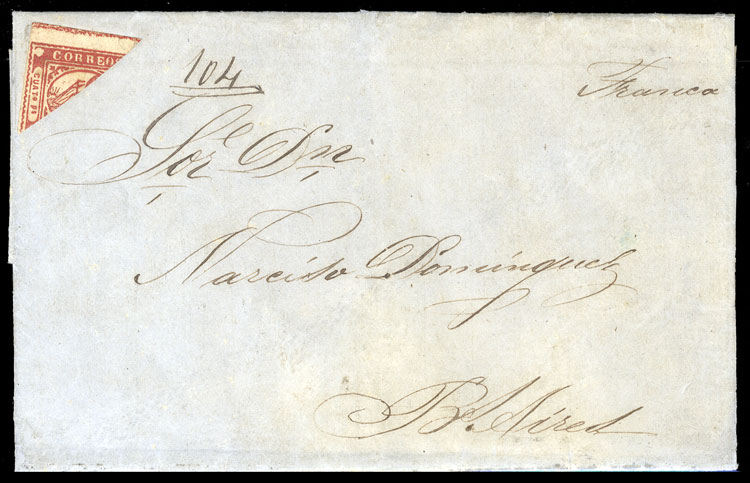 CORREOS
CUATo Ps
104
Franco
Sor. Dn.
Narciso Dominguez
Bs. Aires